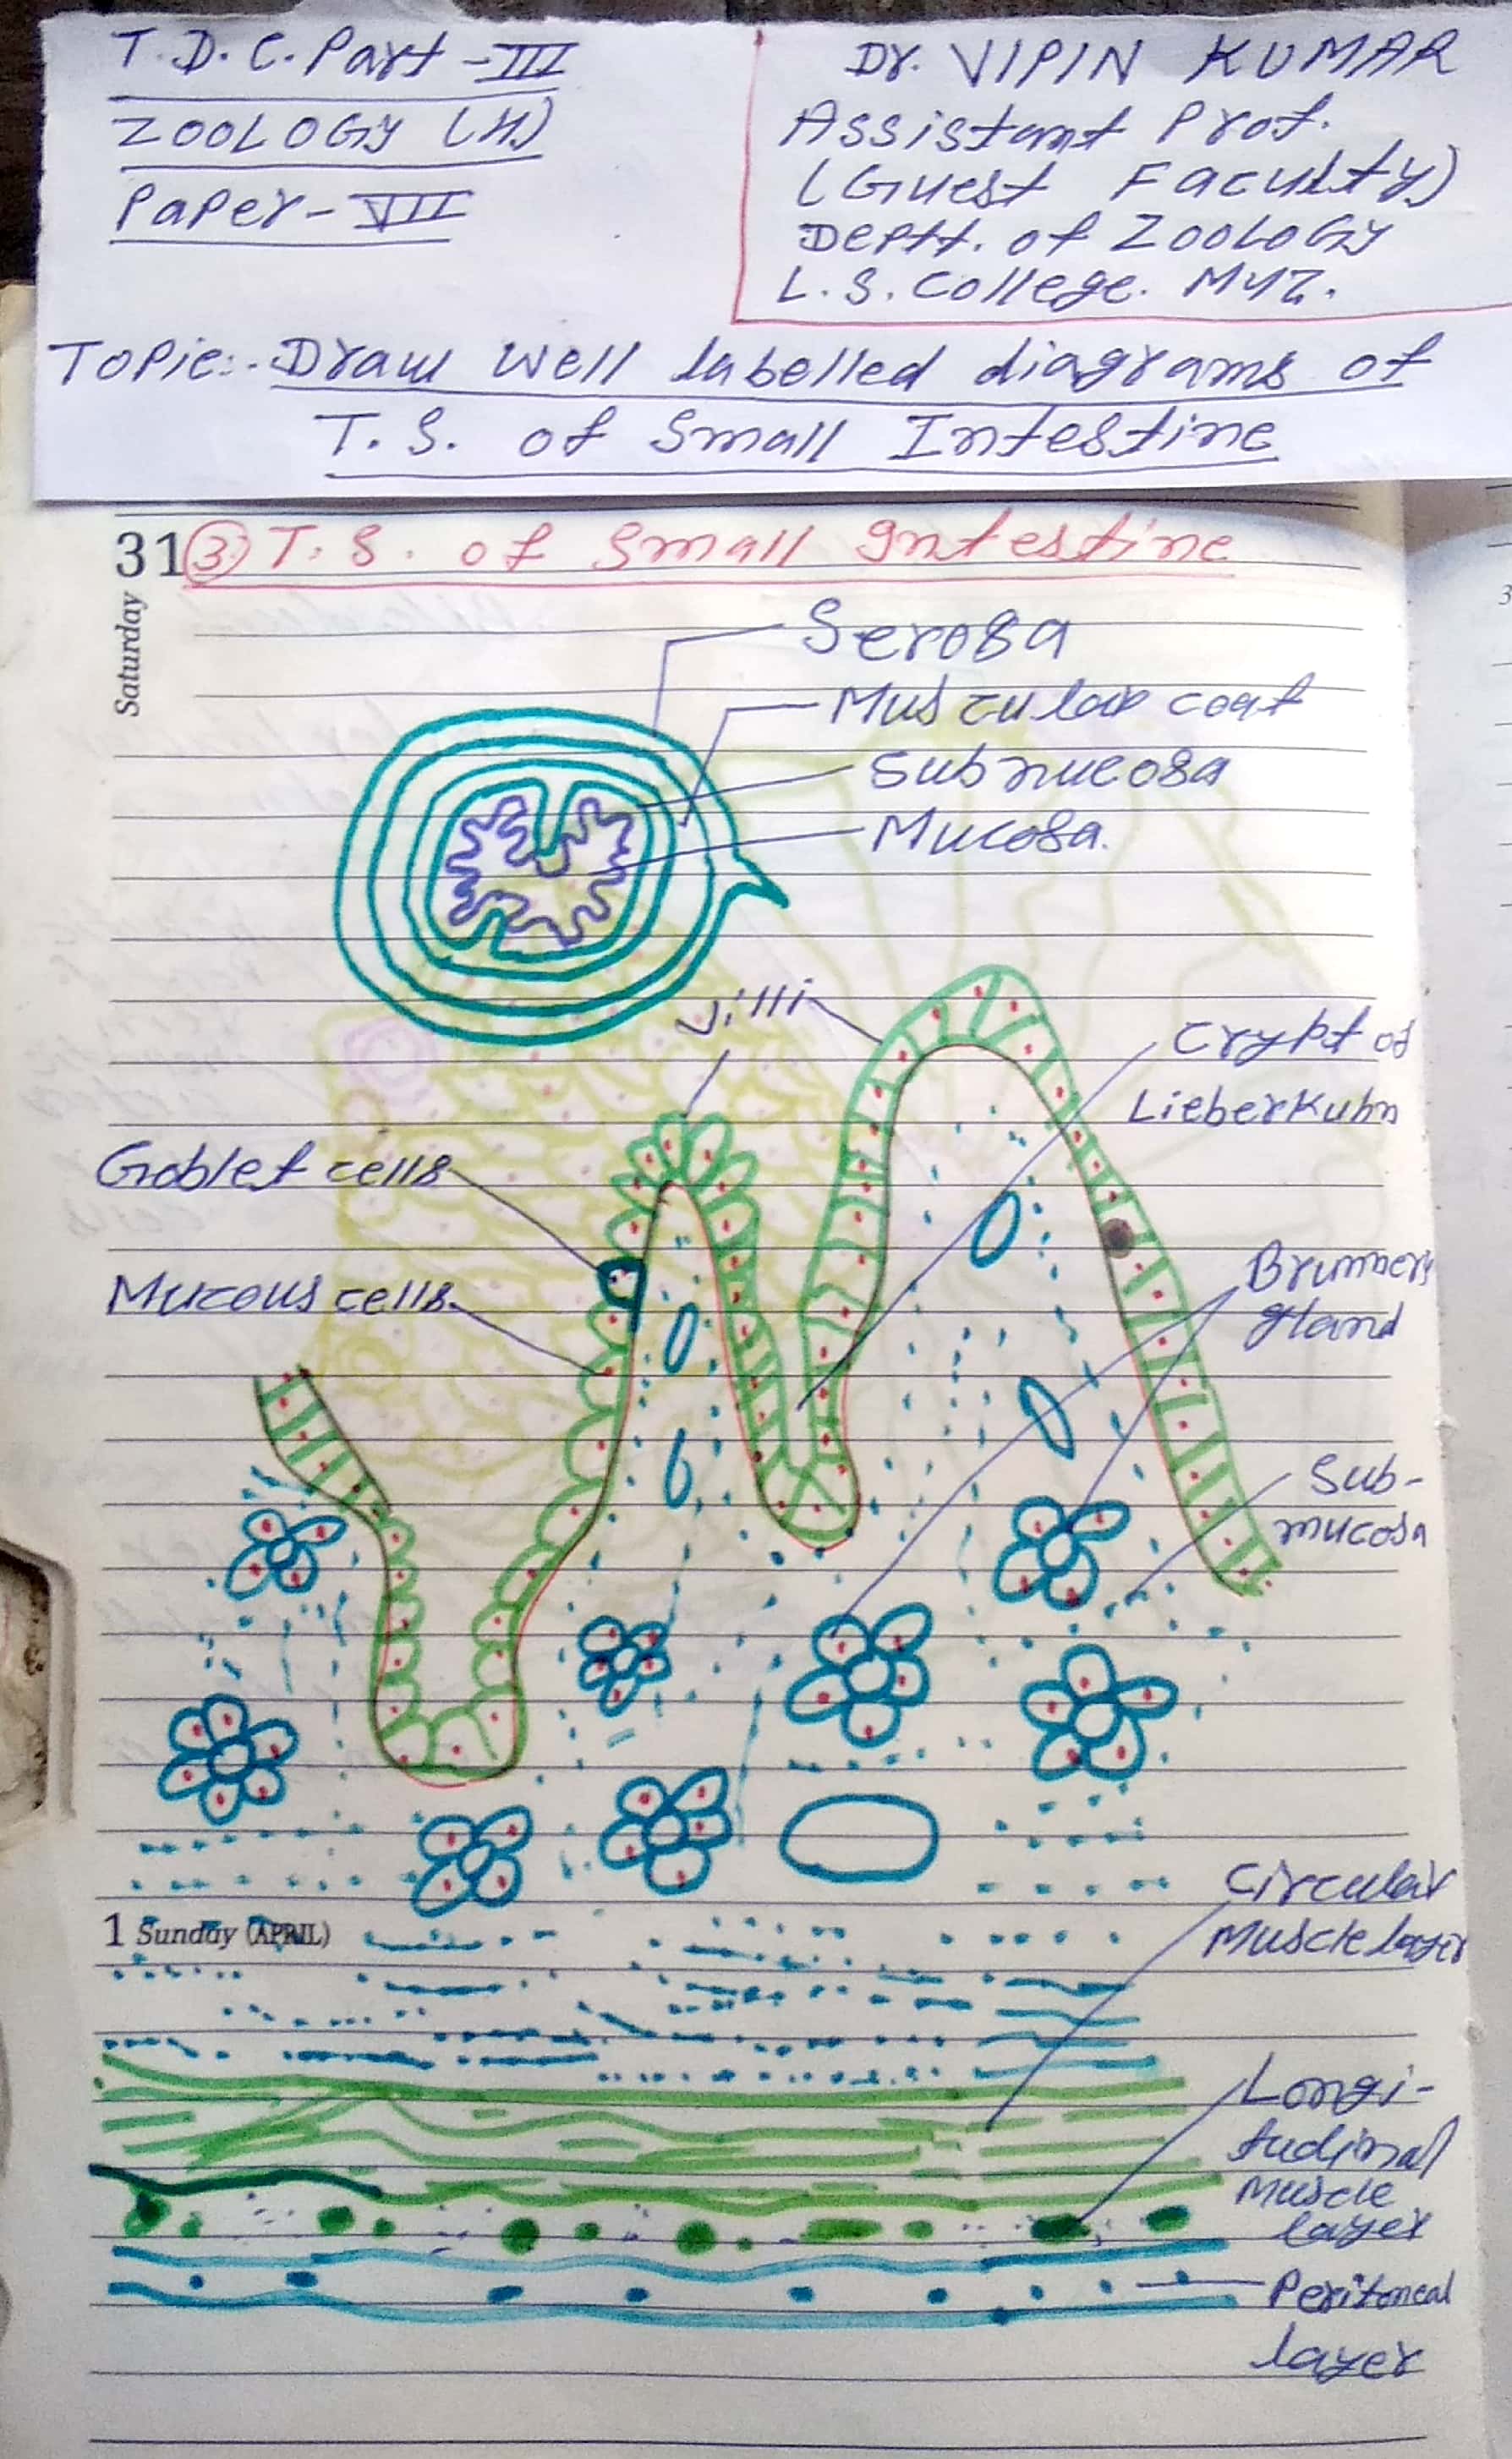 T.D.C. Part-III
ZOOLOGY (H)
Paper-VII
Dr. VIPIN KUMAR
Assistant Prof.
(Guest Faculty)
Deptt. of Zoology
L.S. College. Muz.
Topic:- Draw well labelled diagrams of
T.S. of Small Intestine
31 (3) T.S. of Small Intestine
Saturday
Serosa
Muscular coat
Submucosa
Mucosa.
Villi
Crypt of
Lieberkuhn
Goblet cells
Mucous cells
Brunners
gland
Sub-
mucosa
Circular
Muscle layer
1 Sunday (APRIL)
Longi-
tudinal
Muscle
layer
Peritoneal
layer